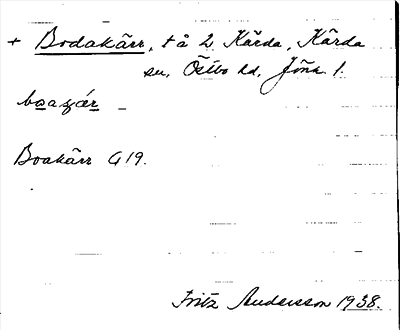 + Bodakärr, t å 2 Kärda, Kärda
sn, Östbo hd, Jönk l.
boazár
Boakärr G 19.
Fritz Andersson 1938.